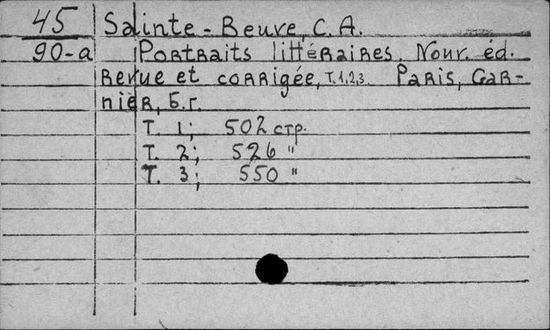 45 Sainte-Beuve, C. A.
90-a Portraits littéraires. Nouv. éd.
revue et corrigée, T. 1, 2, 3. Paris, Gar-
nier, б. г.
Т. 1; 502 стр.
Т. 2; 526 "
Т. 3; 550 "